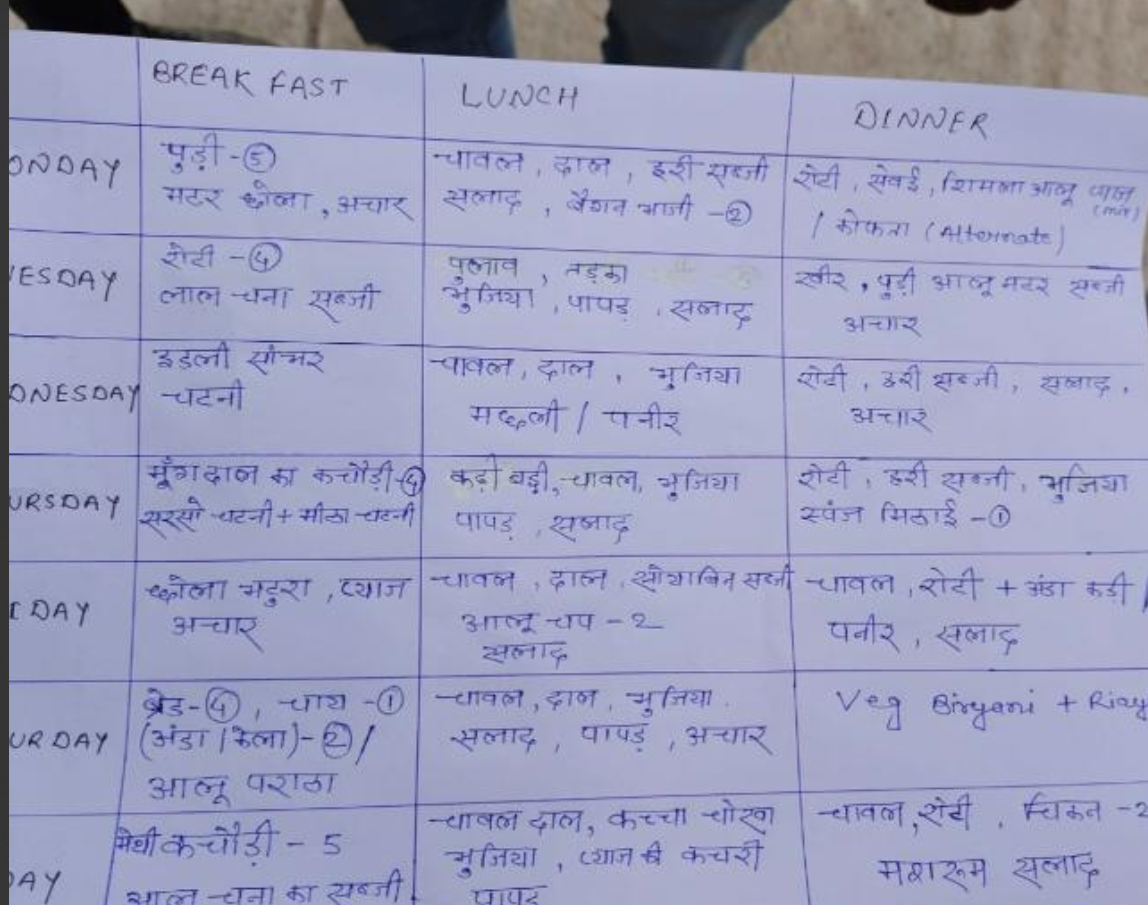 BREAK FAST
LUNCH
DINNER
ONDAY
पुड़ी - ⑤
मटर छोला, अचार
चावल, दाल, हरी सब्जी
सलाद, बैगन भाजी - ②
रोटी, सेवई, शिमला आलू प्याज
(mix)
/ कोफता (Alternate)
ESDAY
रोटी - ④
लाल चना सब्जी
पुलाव, तड़का
भुजिया, पापड़, सलाद
खीर, पुड़ी आलू मटर सब्जी
अचार
DNESDAY
इडली सांभर
चटनी
चावल, दाल, भुजिया
मछली / पनीर
रोटी, हरी सब्जी, सलाद,
अचार
URSDAY
मूँगदाल का कचौड़ी - ④
सरसो चटनी + मीठा चटनी
कढ़ी बड़ी, चावल, भुजिया
पापड़, सलाद
रोटी, हरी सब्जी, भुजिया
स्पंज मिठाई - ①
IDAY
छोला भटुरा, प्याज
अचार
चावल, दाल, सोयाबिन सब्जी
आलू चप - 2
सलाद
चावल, रोटी + अंडा कड़ी /
पनीर, सलाद
URDAY
ब्रेड - ④, चाय - ①
(अंडा / केला) - ② /
आलू पराठा
चावल, दाल, भुजिया.
सलाद, पापड़, अचार
Veg Biryani +
DAY
मेथी कचौड़ी - 5
आलू चना का सब्जी
चावल दाल, कच्चा चोखा
भुजिया, प्याज की कचरी
पापड़
चावल, रोटी, चिकन - 2
मशरूम सलाद